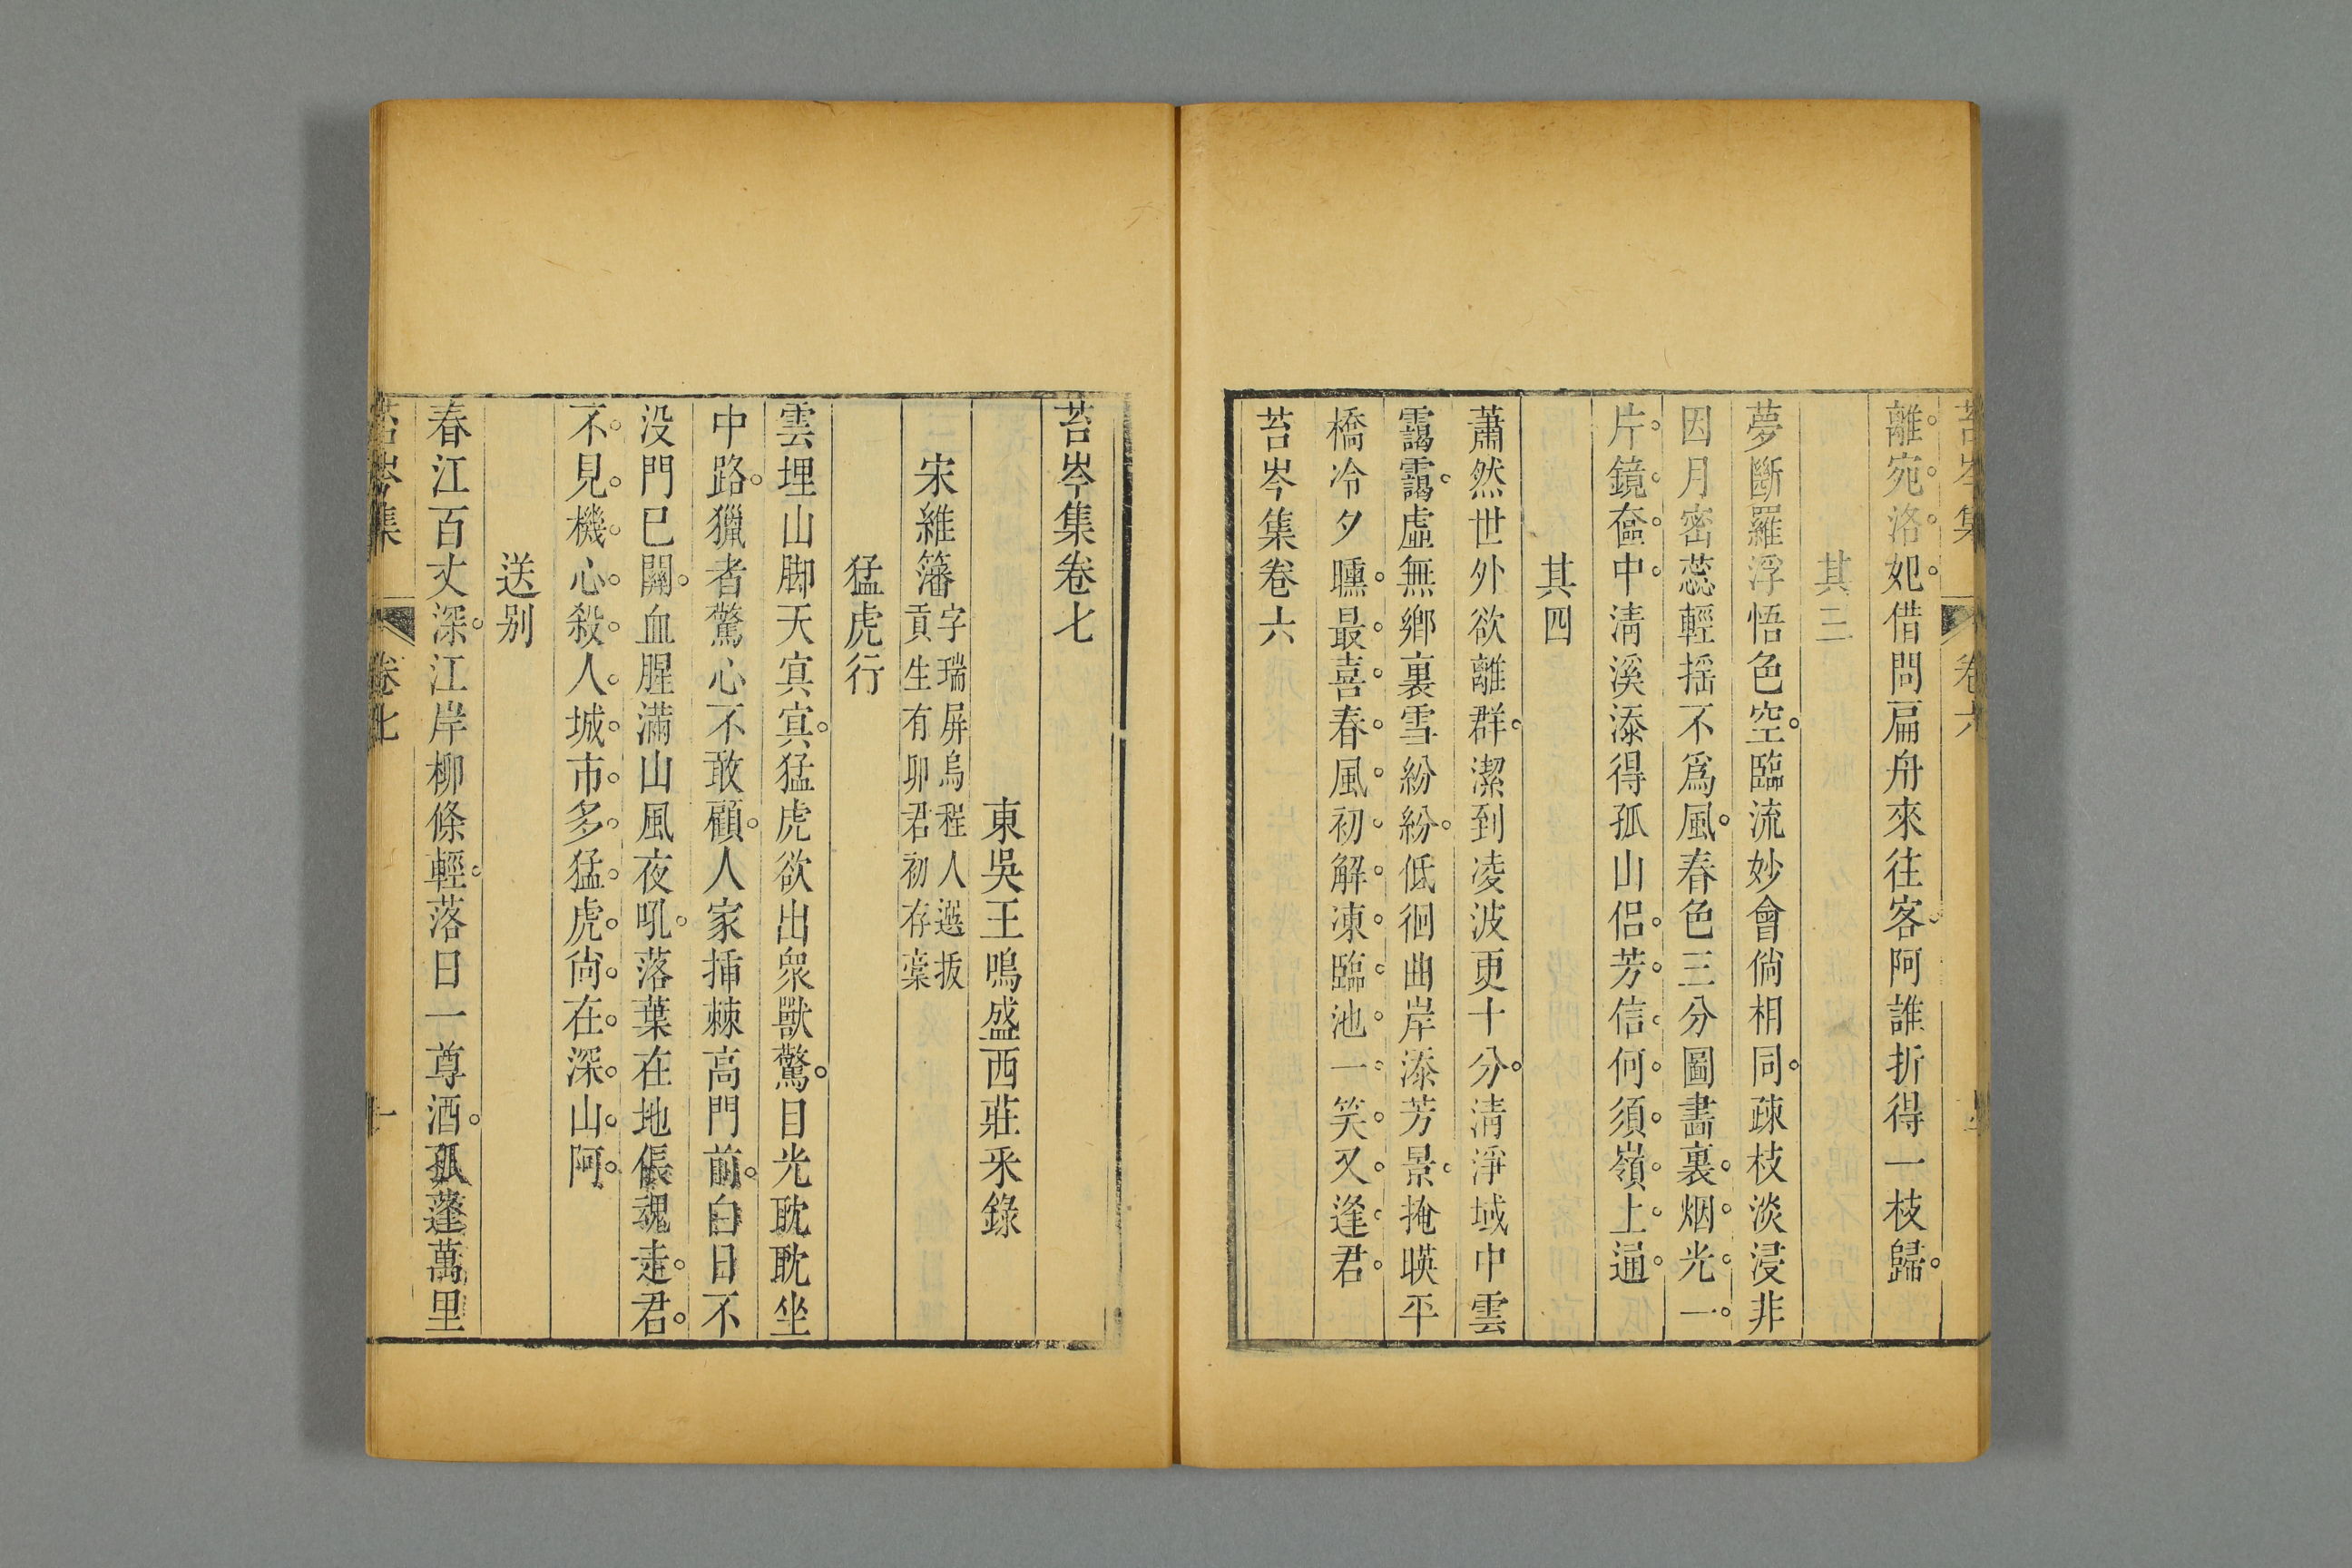 苔岑集 卷六
離宛洛妃借問扁舟來往客阿誰折得一枝歸
其三
夢斷羅浮悟色空臨流妙會倘相同疎枝淡浸非
因月密蕊輕揺不爲風春色三分圖畵裏烟光一
片鏡奩中淸溪添得孤山侶芳信何須嶺上通
其四
蕭然世外欲離群潔到凌波更十分淸淨域中雲
靄靄虛無鄉裏雪紛紛低徊曲岸添芳景掩暎平
橋冷夕曛最喜春風初解凍臨池一笑又逢君
苔岑集卷六
苔岑集卷七
東吳王鳴盛西莊釆錄
宋維藩字瑞屏烏程人選拔
貢生有卯君初存稾
猛虎行
雲埋山脚天寘寘猛虎欲出衆獸驚目光耽耽坐
中路獵者驚心不敢顧人家揷棘高門前白日不
没門已關血腥滿山風夜吼落葉在地倀魂走君
不見機心殺人城市多猛虎尙在深山阿
送别
春江百丈深江岸柳條輕落日一尊酒孤蓬萬里
苔岑集 卷七 一